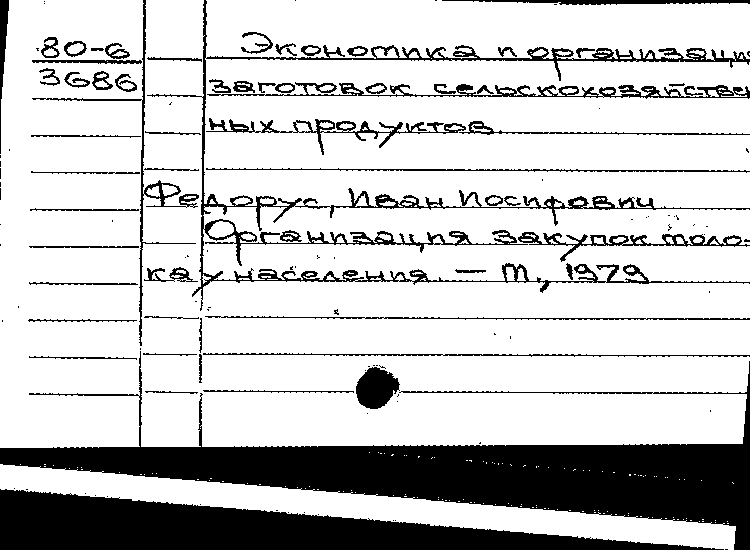 80-6 Экономика и организаци
3686 заготовок сельскохозяйствен
ных продуктов.
Федорус, Иван Иосифович
Организация закупок моло-
ка у населения. — М., 1979